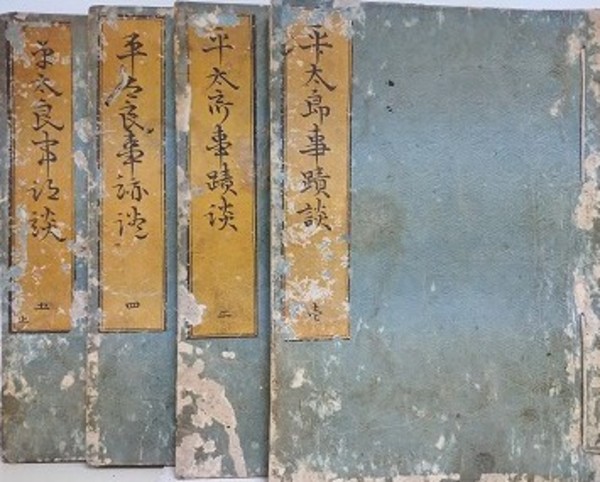 平太郎事蹟談
壱
平太郎事蹟談
二
平太良事跡談
四
平太良事跡談
五上